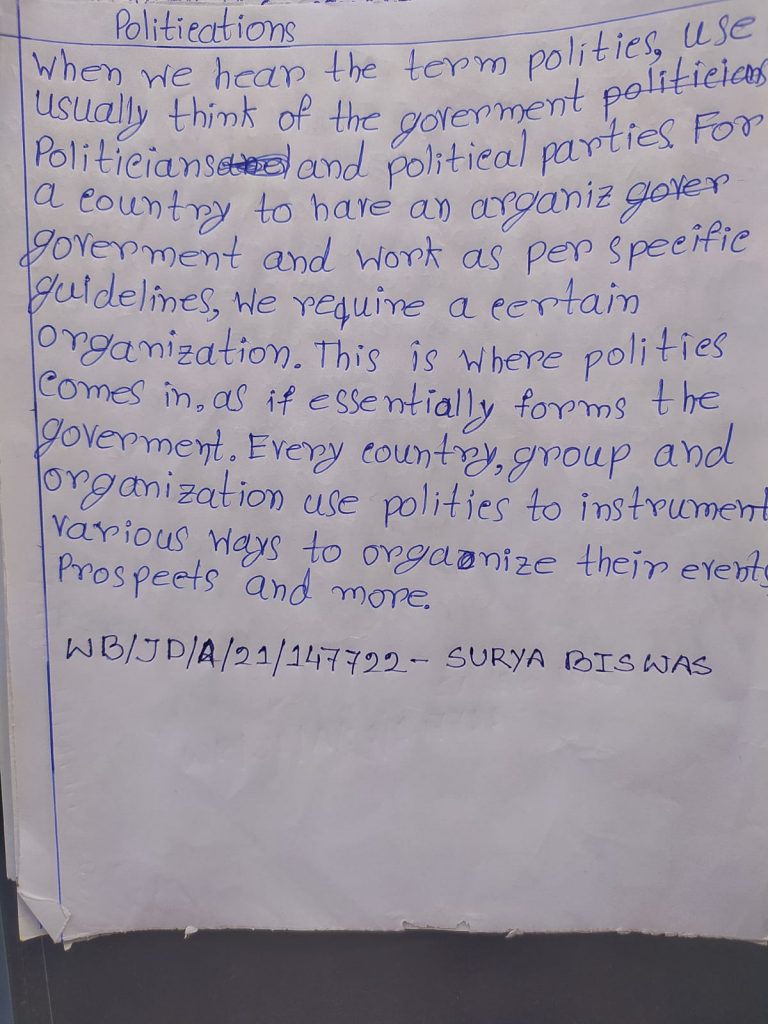 Politications
When we hear the term polities, use
usually think of the goverment politicians
Politicians and political parties. For
a country to have an arganiz gover
goverment and work as per specific
guidelines, We require a certain
organization. This is where polities
comes in, as if essentially forms the
goverment. Every country, group and
organization use polities to instrument
various ways to organize their events
Prospects and more.
WB/JD/A/21/147722- SURYA BISWAS